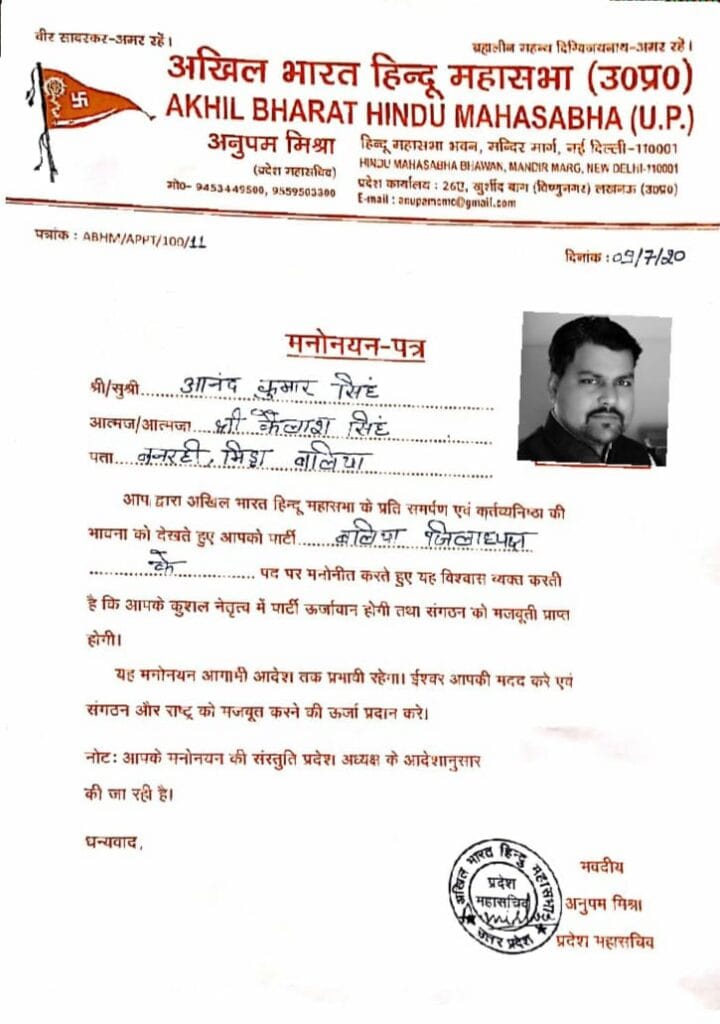 वीर सावरकर-अमर रहें।
ब्रह्मलीन महन्थ दिग्विजयनाथ-अमर रहें।
अखिल भारत हिन्दू महासभा (उ0प्र0)
AKHIL BHARAT HINDU MAHASABHA (U.P.)
अनुपम मिश्रा
(प्रदेश महासचिव)
मो0- 9453449500, 9559503300
हिन्दू महासभा भवन, मन्दिर मार्ग, नई दिल्ली-110001
HINDU MAHASABHA BHAWAN, MANDIR MARG, NEW DELHI-110001
प्रदेश कार्यालय : 26ए, खुर्शीद बाग (विष्णुनगर) लखनऊ (उ0प्र0)
E-mail : anupamcmc@gmail.com
पत्रांक : ABHM/APPT/100/11
दिनांक : 09/7/20
मनोनयन-पत्र
श्री/सुश्री..... आनंद कुमार सिंह
आत्मज/आत्मजा श्री कैलाश सिंह
पता.... बलिया
आप द्वारा अखिल भारत हिन्दू महासभा के प्रति समर्पण एवं कर्तव्यनिष्ठा की
भावना को देखते हुए आपको पार्टी..... बलिया जिलाध्यक्ष
के ............ पद पर मनोनीत करते हुए यह विश्वास व्यक्त करती
है कि आपके कुशल नेतृत्व में पार्टी ऊर्जावान होगी तथा संगठन को मजबूती प्राप्त
होगी।
यह मनोनयन आगामी आदेश तक प्रभावी रहेगा। ईश्वर आपकी मदद करे एवं
संगठन और राष्ट्र को मजबूत करने की ऊर्जा प्रदान करे।
नोटः आपके मनोनयन की संस्तुति प्रदेश अध्यक्ष के आदेशानुसार
की जा रही है।
धन्यवाद,
अखिल भारत हिन्दु महासभा
प्रदेश
महासचिव
उत्तर प्रदेश
भवदीय
अनुपम मिश्रा
प्रदेश महासचिव